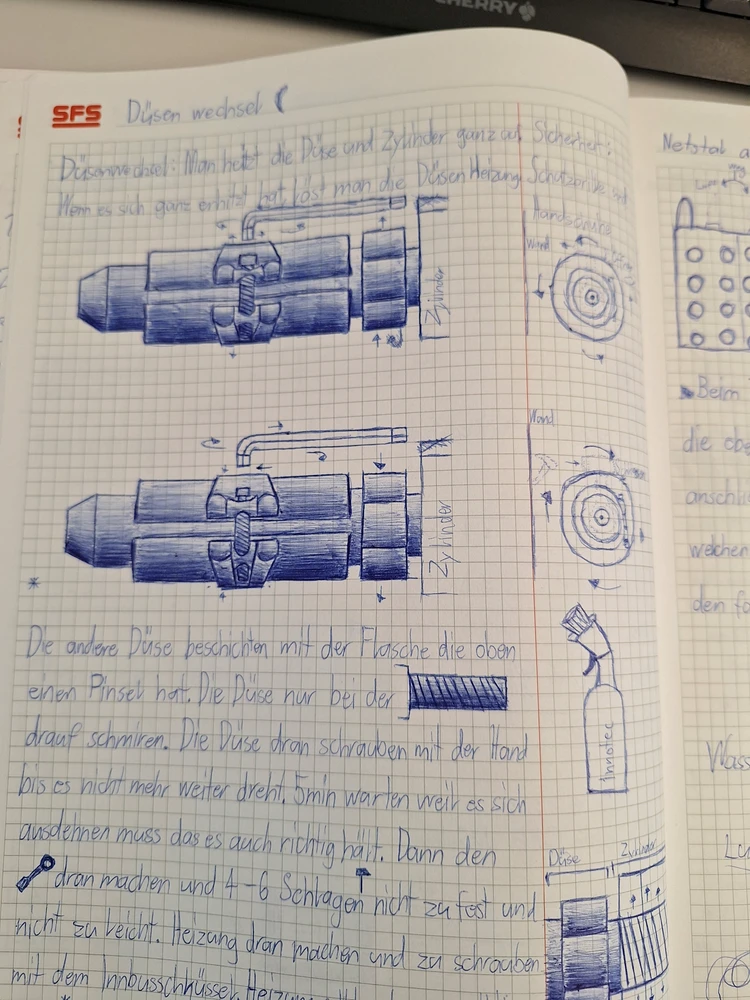 CHERRY
SFS Düsen wechsel
Düsenwechsel: Man heitzt die Düse und Zylinder ganz auf. Sicherheit:
Wenn es sich ganz erhitzt hat löst man die Düsen Heizung. Schutzbrille und
Handschuhe
Wand
Zylinder
Wand
Zylinder
Die andere Düse beschichten mit der Flasche die oben
einen Pinsel hat. Die Düse nur bei der
drauf schmiren. Die Düse dran schrauben mit der Hand
bis es nicht mehr weiter dreht. 5min warten weil es sich
ausdehnen muss das es auch richtig hält. Dann den
dran machen und 4-6 Schlagen nicht zu fest und
nicht zu leicht. Heizung dran machen und zu schrauben
mit dem Innbusschlüssel.
Innotec
Düse
Zylinder
Netstal
Beim
die
welchen
den